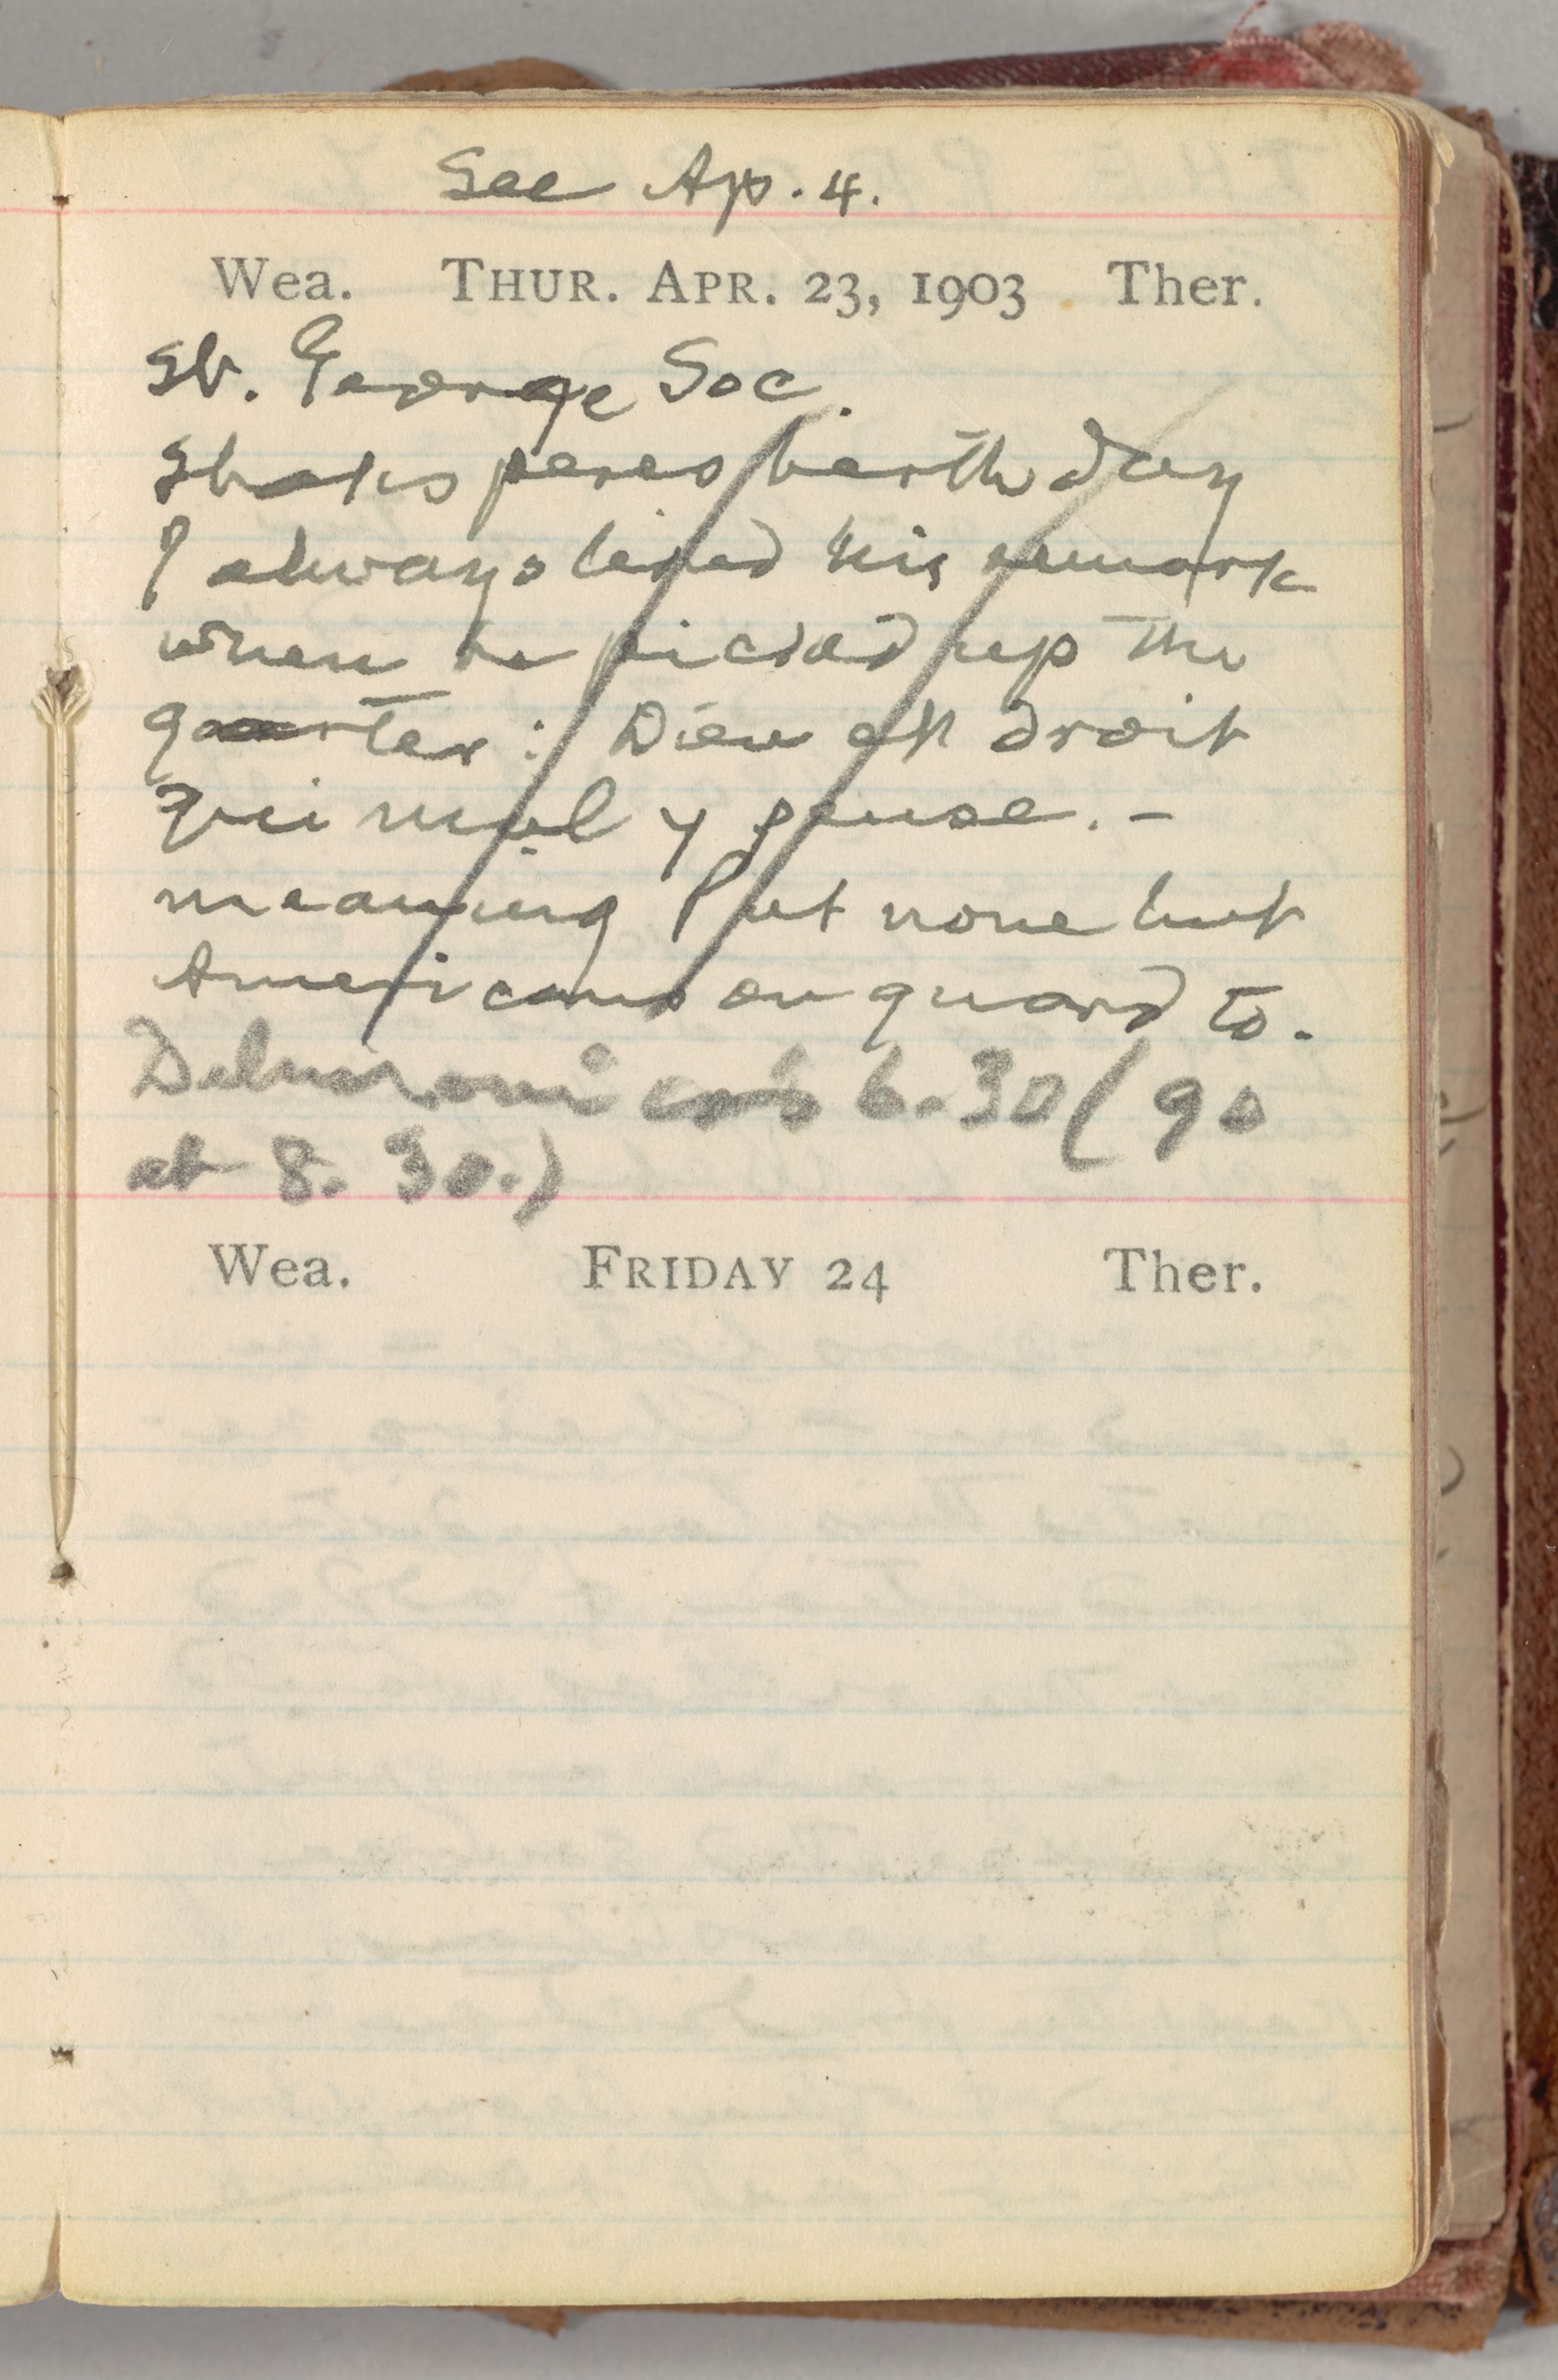 See Ap. 4.
Wea. THUR. APR. 23, 1903 Ther.
St. George Soc.
Shaksperes birth day
I always liked his remark
when he picked up the
garter: Dieu est droit
qui mal y pense. -
meaning Put none but
Americans on guard to.
Delmonico's 6.30 (go
at 8.30.)
Wea. FRIDAY 24 Ther.